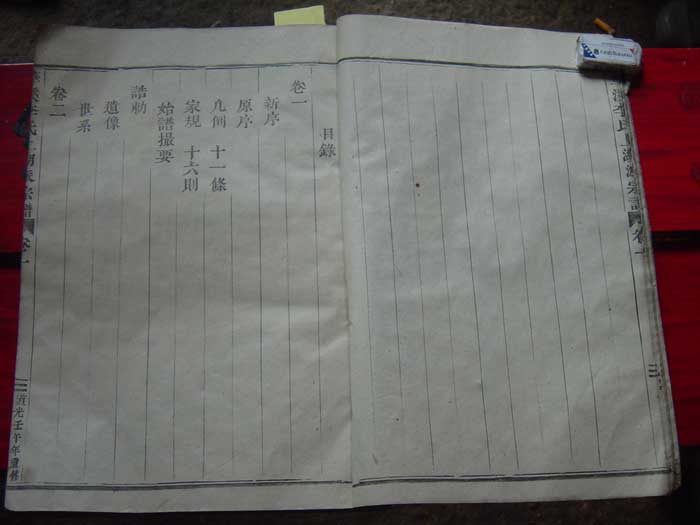 目錄
卷一
新序
原序
凡例 十一條
家規 十六則
始譜撮要
誥勅
遺像
卷二
世系
宗譜 卷一
道光壬午年重修
宗譜 卷一